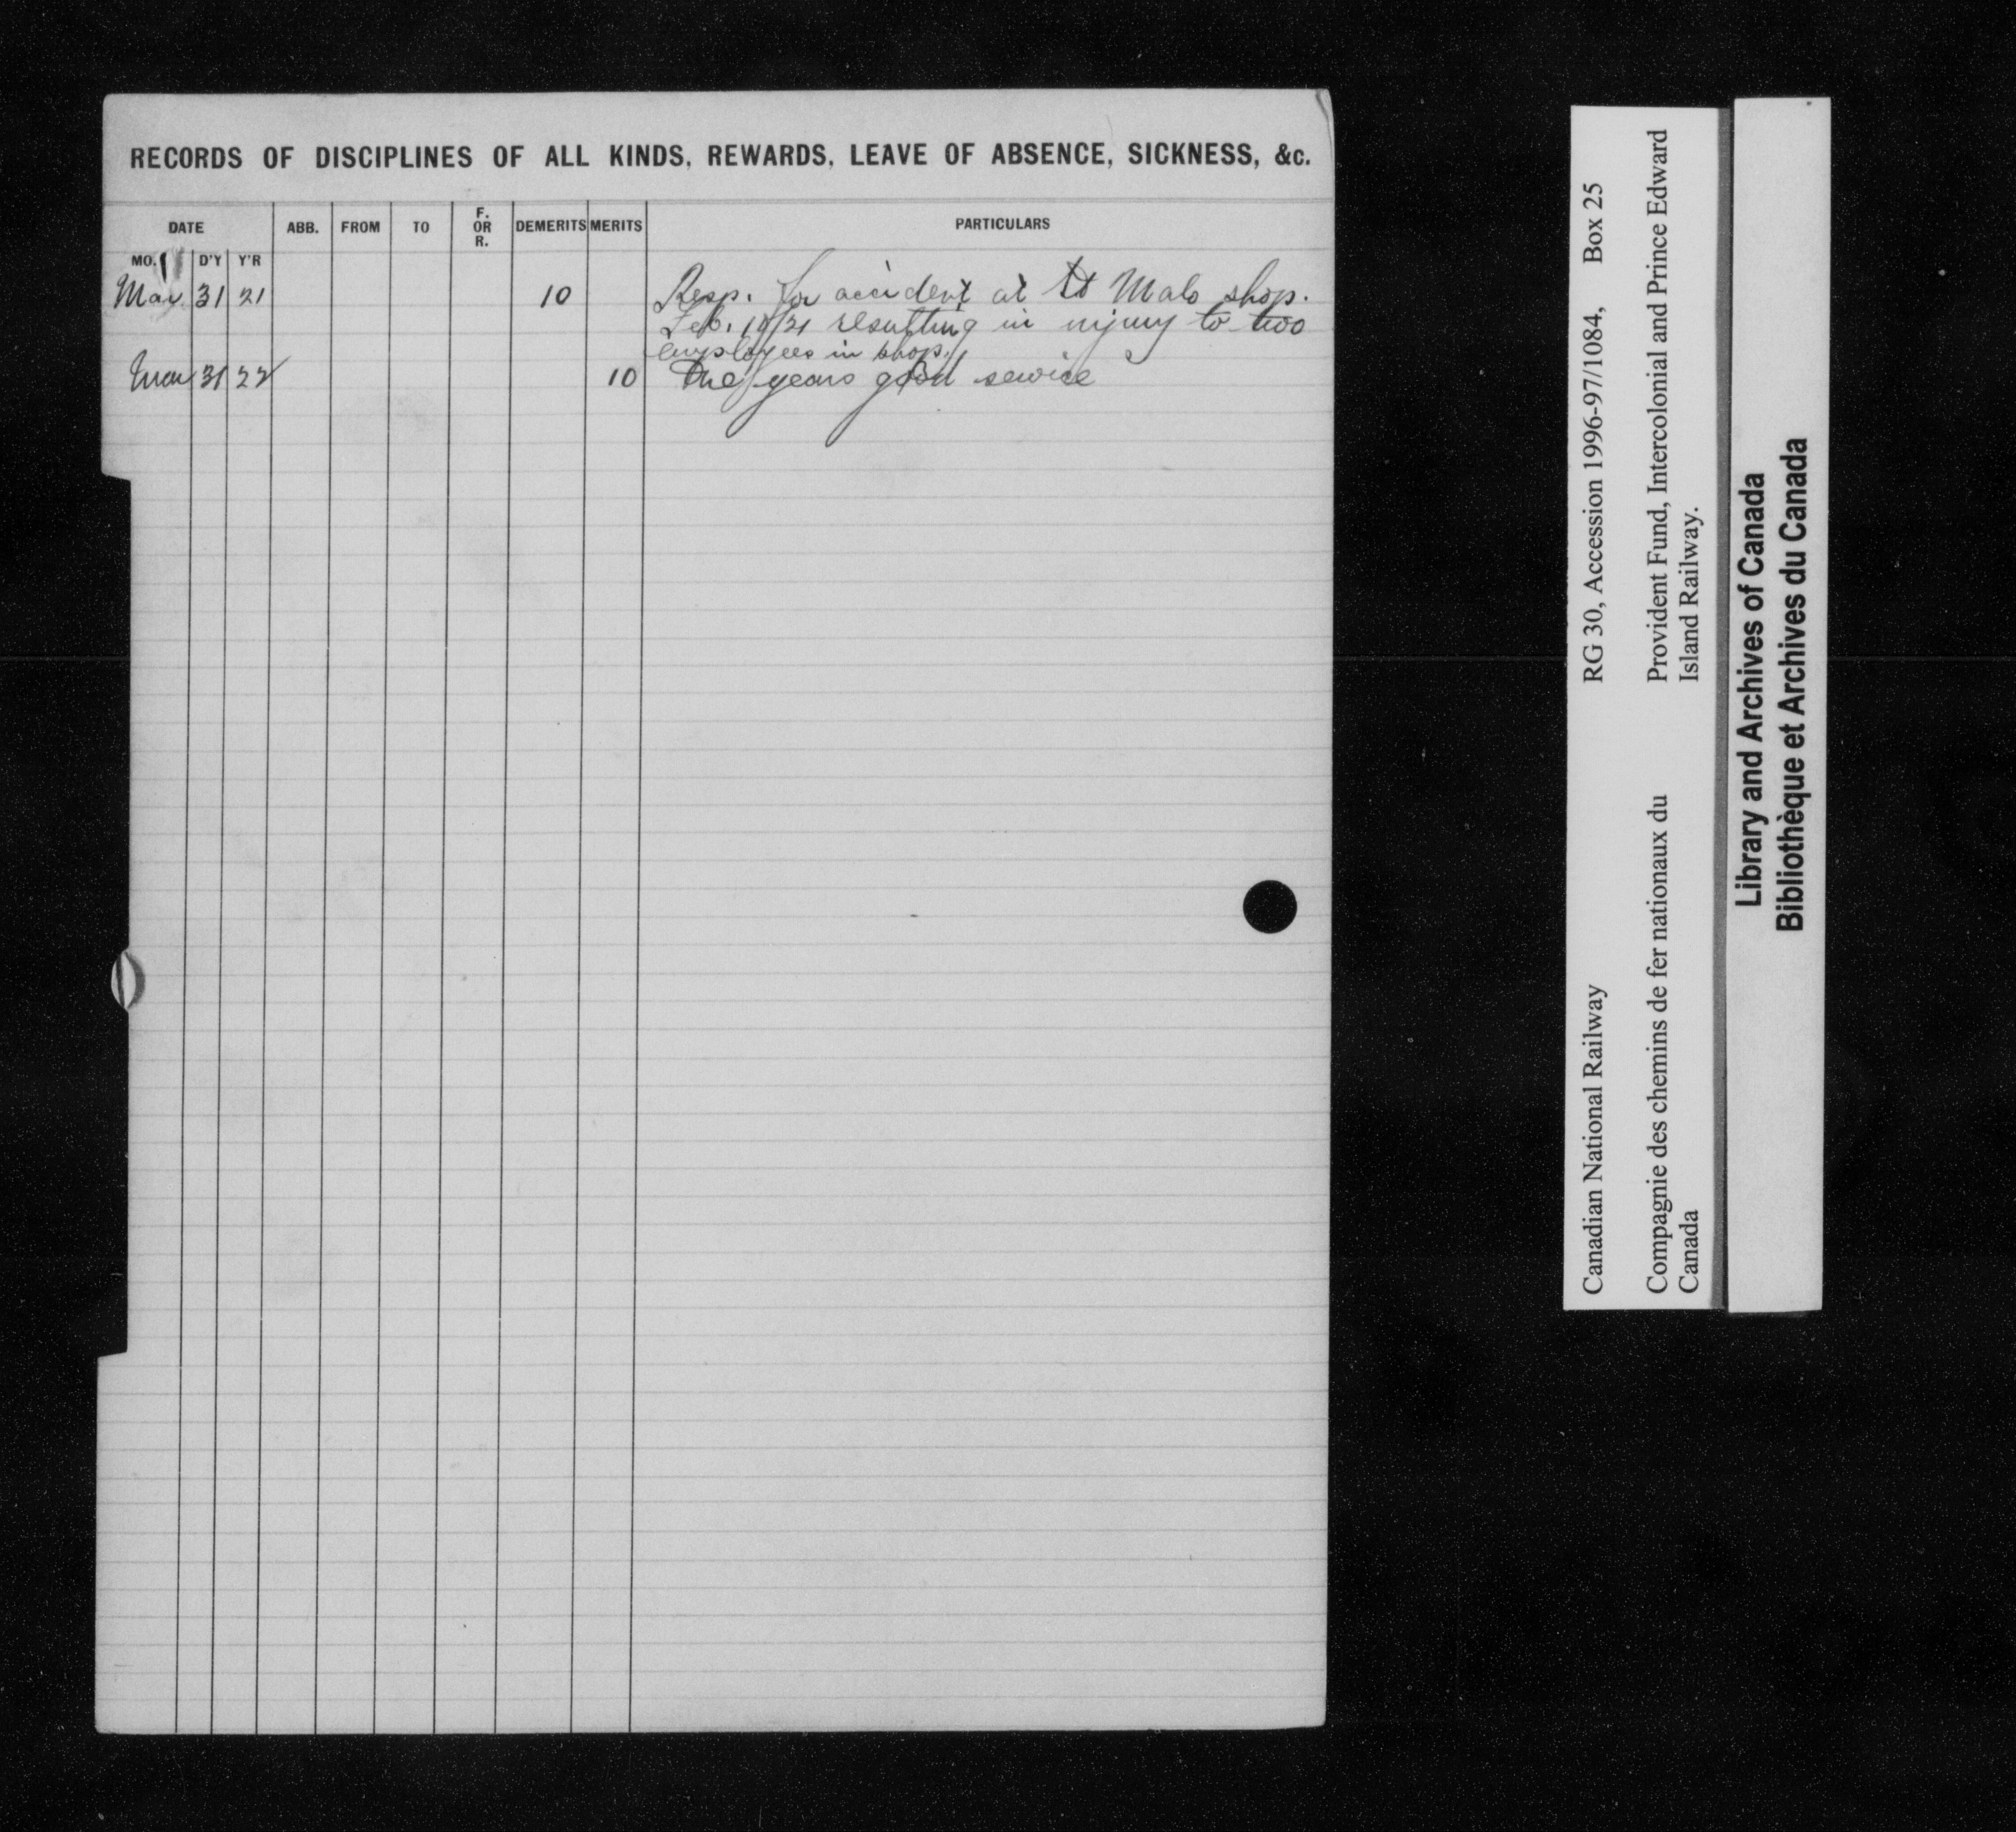 RECORDS OF DISCIPLINES OF ALL KINDS, REWARDS, LEAVE OF ABSENCE, SICKNESS, &c.
DATE ABB. FROM TO F. OR R. DEMERITS MERITS PARTICULARS
MO. D'Y Y'R
Mar 31 21 10 Resp. for accident at St Malo shop.
Feb. /21 resulting in injury to two
employees in shop.
Mar 31 22 10 One years good service
Canadian National Railway RG 30, Accession 1996-97/1084, Box 25
Compagnie des chemins de fer nationaux du Provident Fund, Intercolonial and Prince Edward
Canada Island Railway.
Library and Archives of Canada
Bibliothèque et Archives du Canada